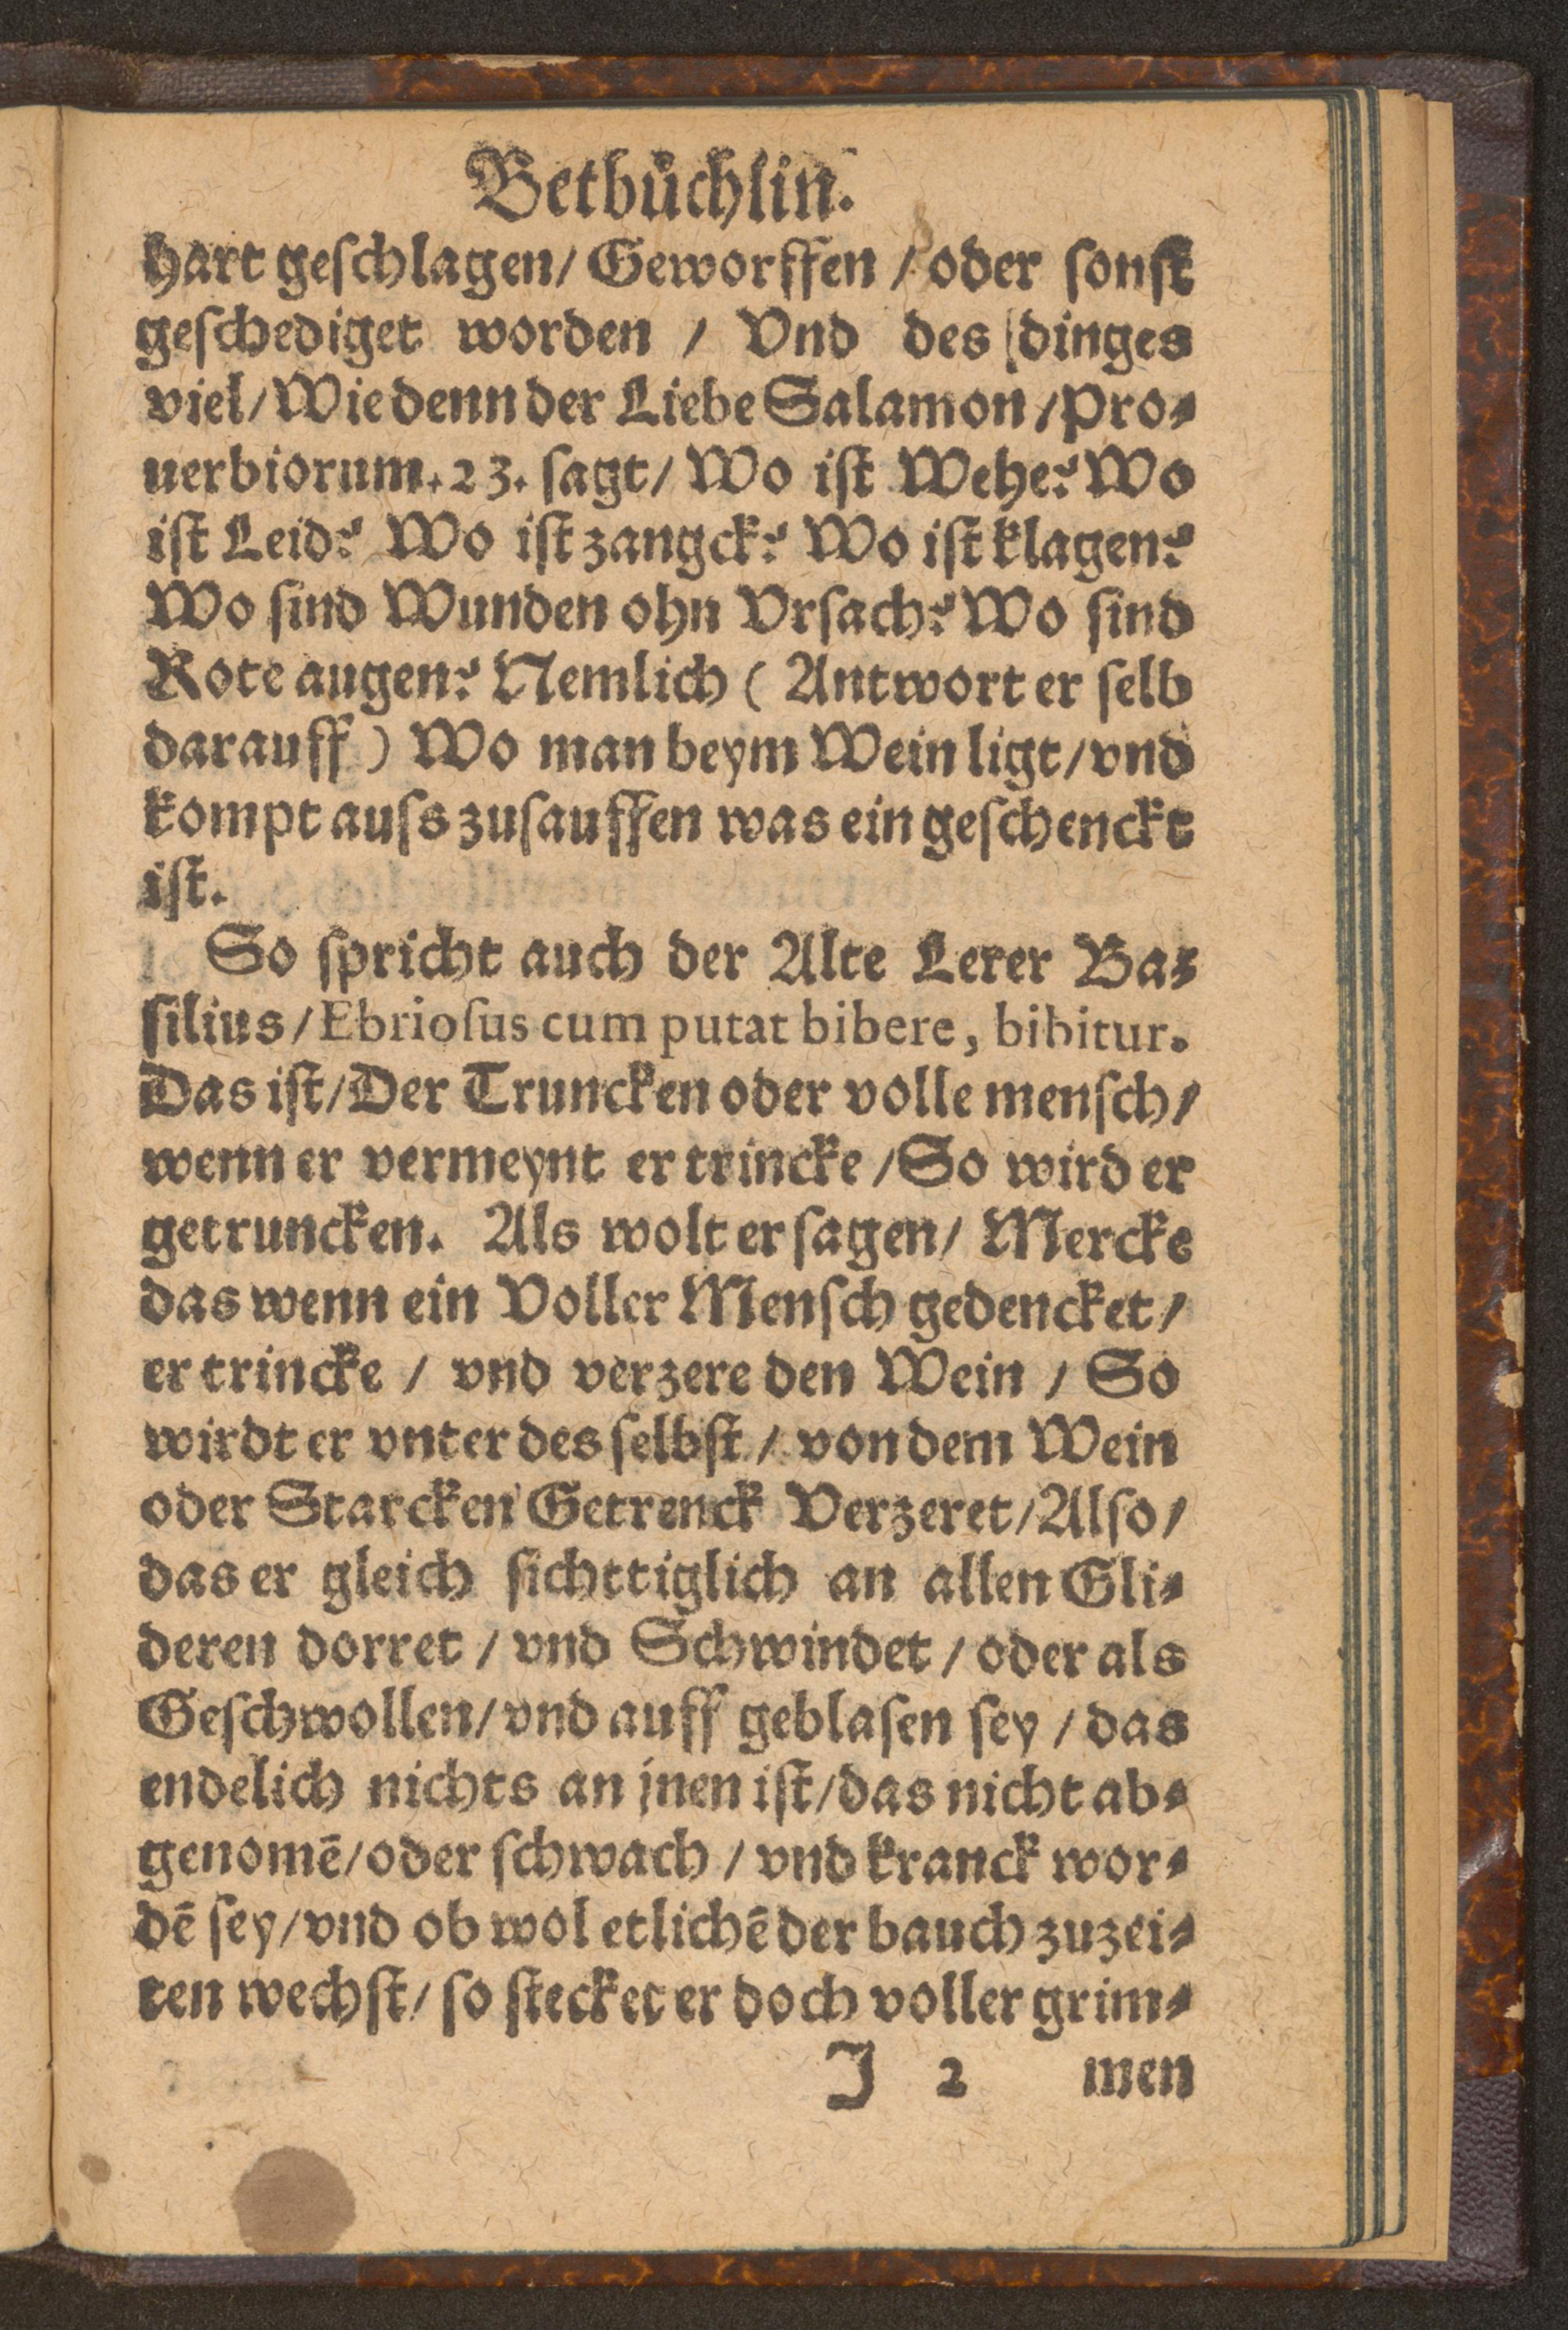 Betbuͤchlin.
hart geſchlagen/ Geworffen / oder ſonſt
geſchediget worden / Vnd des dinges
viel/ Wie denn der Liebe Salamon /Pro⸗
uerbiorum. 23. ſagt/ Wo iſt Wehe? Wo
iſt Leid? Wo iſt zangck? Wo iſt klagen?
Wo ſind Wunden ohn Vrſach? Wo ſind
Rote augen? Nemlich ( Antwort er ſelb
darauff ) Wo man beym Wein ligt/ vnd
kompt auſs zuſauffen was ein geſchenckt
iſt.
So ſpricht auch der Alte Lerer Ba⸗
ſilius/ Ebrioſus cum putat bibere, bibitur.
Das iſt/ Der Truncken oder volle menſch/
wenn er vermeynt er trincke /So wird er
getruncken. Als wolt er ſagen/ Mercke
das wenn ein Voller Menſch gedencket/
er trincke / vnd verzere den Wein / So
wirdt er vnter des ſelbſt / von dem Wein
oder Starcken Getrenck Verzeret/ Alſo/
das er gleich ſichttiglich an allen Gli⸗
deren dorret / vnd Schwindet / oder als
Geſchwollen/ vnd auff geblaſen ſey / das
endelich nichts an jnen iſt/ das nicht ab⸗
genomē/ oder ſchwach / vnd kranck wor⸗
dē ſey/ vnd ob wol etlichē der bauch zuzei⸗
ten wechſt/ ſo ſtecket er doch voller grim⸗
J 2 men